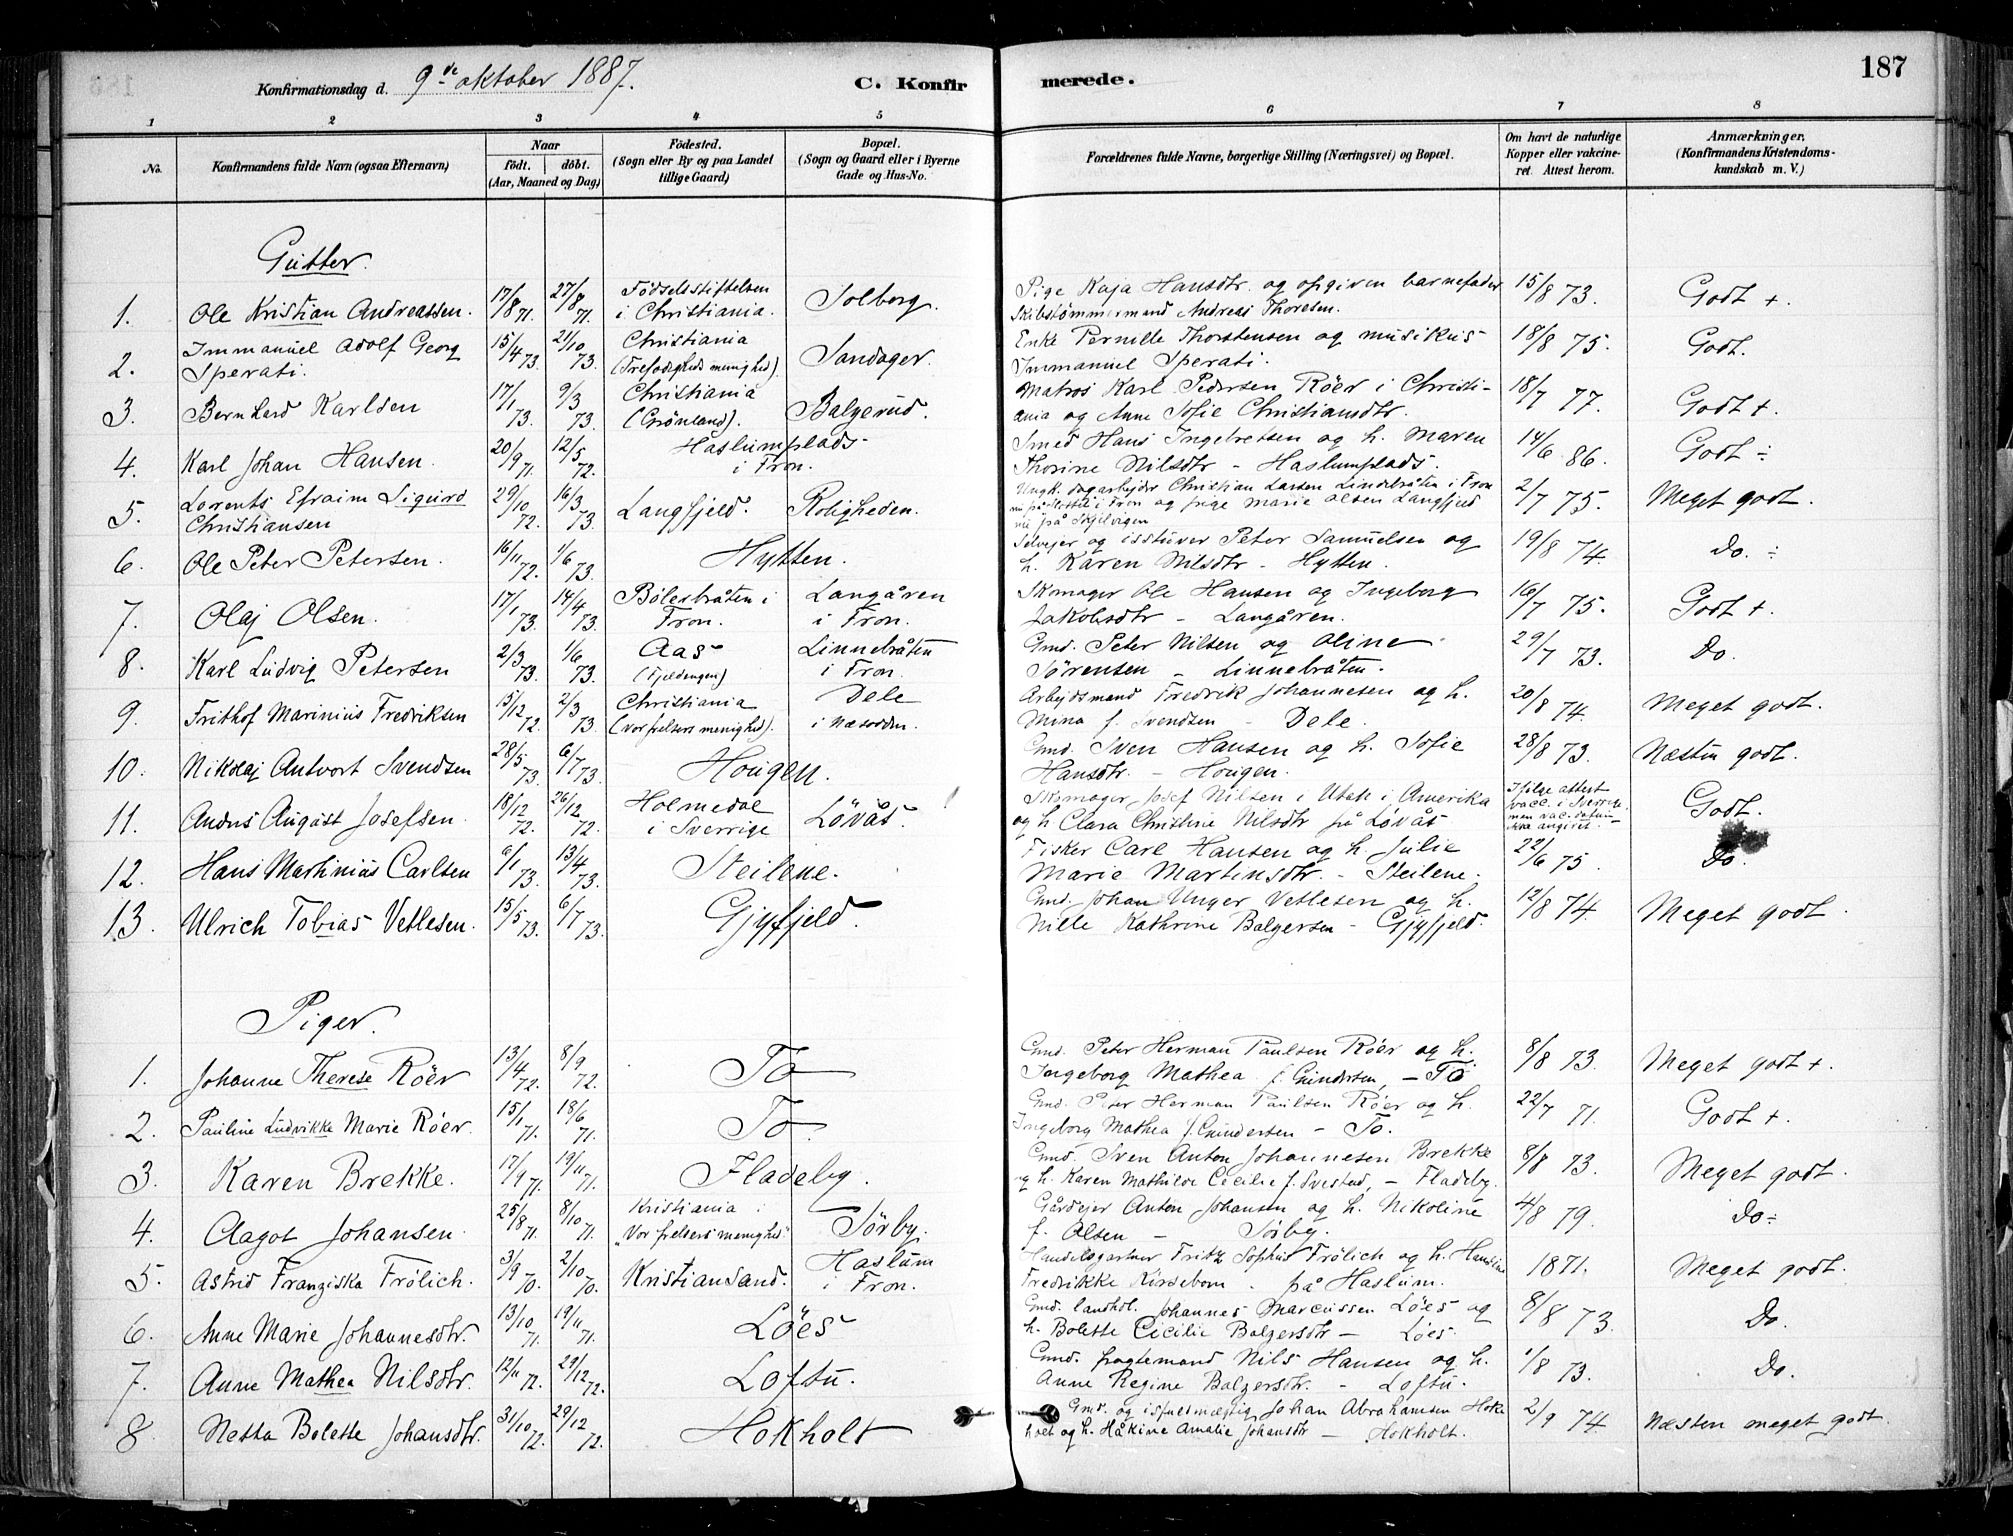 187
Konfirmationsdag d. 9de oktober 1887. C. Konfirmerede.
1 2 3 4 5 6 7 8
No.
Konfirmandens fulde Navn (ogsaa Efternavn)
Naar
født. døbt.
(Aar, Maaned og Dag)
Fødested.
(Sogn eller By og paa Landet
tillige Gaard)
Bopæl.
(Sogn og Gaard eller i Byerne
Gade og Hus-No.
Forældrenes fulde Navne, borgerlige Stilling (Næringsvei) og Bopæl.
Om havt de naturlige
Kopper eller vakcine-
ret. Attest herom.
Anmærkninger.
(Konfirmandens Kristendoms-
kundskab m. V.)
Gutter.
1. Ole Kristian Andreassen. 17/8 71. 27/8 71. Fødselsstiftelsen i Christiania. Solborg. Pige Kaja Hansdtr. og opgiven barnefader 15/8 73. Godt +
Skibstømmermand Andreas Thoresen.
2. Immanuel Adolf Georg 15/4 73. 21/10 73. Christiania Sandager. Enke Pernille Thorstensen og musikus 18/8 75. Godt.
Sperati. (Trefoldigheds menighed). Immanuel Sperati.
3. Bernhard Karlsen 17/1 73. 9/3 73. Christiania (Grønland). Balgerud. Matros Karl Pedersen Röer i Christi- 18/7 77. Godt +.
ania og Anne Sofie Christiansdtr.
4. Karl Johan Hansen. 20/9 71. 12/5 72. Haslumplads i Fron. Smed Hans Ingebretsen og h. Maren 14/6 86. Godt ÷
Thorine Nilsdtr - Haslumplads.
5. Lorents Efraim Sigurd 29/10 72. 16/3 73. Langfjeld. Roligheden. Ungk. dagarbejder Christian Larsen Lindebråten i Fron 2/7 75. Meget godt.
Christiansen i Fron og pige Marie Olsen Langfjeld
nu på Skjelvigen
6. Ole Peter Petersen. 16/11 72. 1/6 73. Hytten. Selvejer og isstuver Peter Samuelsen og 19/8 74. Do. ÷
h. Karen Nilsdtr - Hytten.
7. Olaj Olsen. 17/1 73. 14/4 73. Bölerbråten i Fron. Langåren i Fron. Skomager Ole Hansen og Ingeborg 16/7 75. Godt +
Jakobsdtr - Langåren.
8. Karl Ludvig Petersen 2/3 73. 1/6 73. Aas (Fjeldengen) Linnebråten i Fron. Gmd. Peter Nilsen og Oline 29/7 73. Do.
Sörensen - Linnebråten.
9. Frithof Marinius Fredriksen 15/12 72. 2/3 73. Christiania (vor frelsers menighed). Dele i Næsodden. Arbejdsmand Fredrik Johannesen og h. 20/8 74. Meget godt.
Mina f. Svendsen - Dele.
10. Nikolaj Antvort Svendsen 28/5 73. 6/7 73. Hougen. Gmd. Sven Hansen og h. Sofie 28/8 73. Næsten godt.
Hansdtr. - Hougen.
11. Anders August Josefsen. 18/12 72. 26/12 72. Holmedal i Sverrige Lövås. Skomager Josef Nilsen i Utah i Amerika Ifölge attest Godt.
og h Clara Christine Nilsdtr på Lövås vacc. i Sverrige, men vac. datum ikke angivet.
12. Hans Martinius Carlsen 6/1 73. 13/4 73. Steilene. Fisker Carl Hansen og h. Julie 22/6 75. Do.
Marie Martinsdtr. - Steilene.
13. Ulrich Tobias Vetlesen. 15/5 73. 6/7 73. Gjyfjeld. Gmd. Johan Unger Vetlesen og h. 12/8 74. Meget godt.
Nille Kathrine Balgersen - Gjyfjeld.
Piger.
1. Johanne Therese Röer 13/4 72. 8/9 72. To Gmd. Peter Herman Paulsen Röer og h. 8/8 73. Meget godt +.
Ingeborg Mathea f. Gundersen, - To
2. Pauline Ludvikke Marie Röer. 15/1 71. 18/6 71. To. Gmd. Peter Herman Paulsen Röer og h. 22/7 71. Godt +.
Ingeborg Mathea f. Gundersen - To.
3. Karen Brekke. 17/9 71. 19/11 71. Fladeby. Gmd. Sven Anton Johannesen Brekke 8/8 73. Meget godt.
og h. Karen Mathilde Cecilie f. Svestad, - Fladeby.
4. Aagot Johansen. 25/8 71. 8/10 71. Kristiania "Vor frelsers menighed" Sörby. Gårdejer Anton Johansen og h. Nikoline 4/8 79. Do ÷
f. Olsen - Sörby.
5. Astrid Franziska Frölich. 3/9 70. 2/10 70. Kristiansand. Haslum i Fron. Handelsgartner Fritz Sophus Frölich og h. 1871. Meget godt.
Fredrikke Kirsebom - på Haslum.
6. Anne Marie Johannesdtr. 13/10 71. 19/11 71. Löes Gmd. landhdl. Johannes Marcussen Löes og 8/8 73. Do.
h. Bolette Cicilie Balgersdtr - Löes.
7. Anne Mathea Nilsdtr. 12/11 72. 29/12 72. Loftu. Gmd. fragtemand Nils Hansen og h. 1/8 73. Do.
Anne Regine Balgersdtr. - Loftu.
8 Netta Bolette Johansdtr. 31/10 72. 29/12 72. Hokholt Gmd. og isfuldmægtig Johan Abrahamsen Hok- 2/9 74 Næsten meget godt.
holt og h. Håkine Amalie Johansdtr - Hokholt.